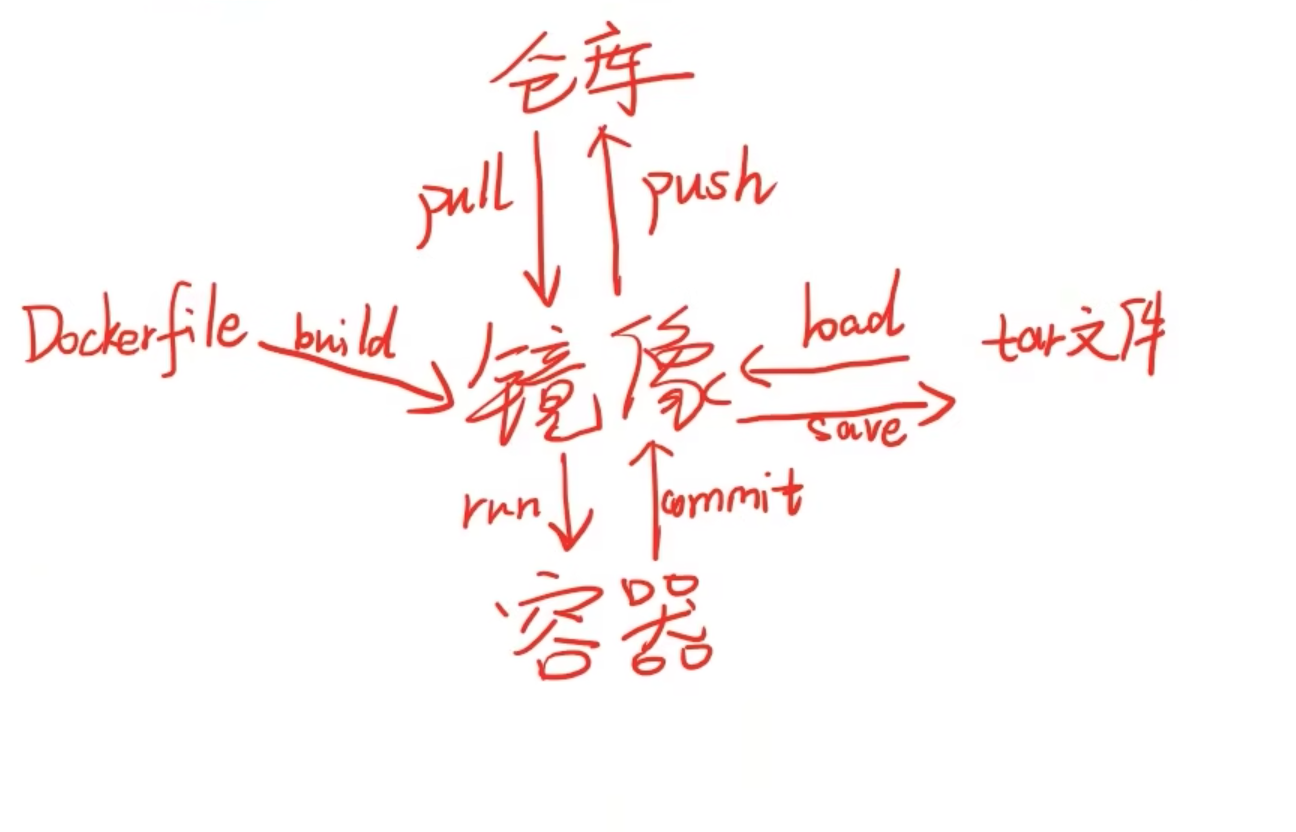 仓库
pull
push
Dockerfile
build
镜像
load
tar文件
save
run
commit
容器